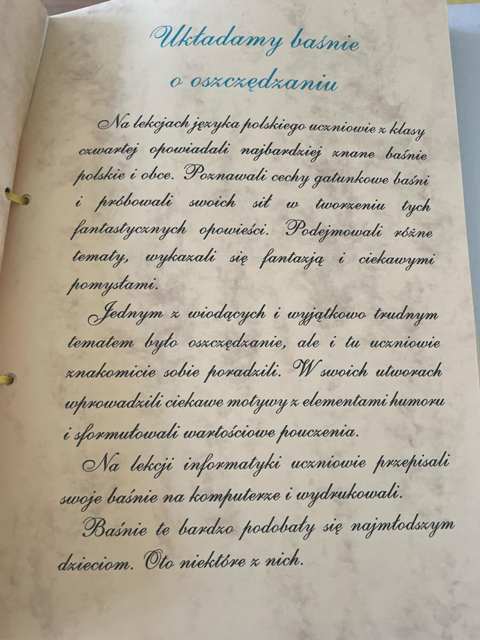 Układamy baśnie
o oszczędzaniu
Na lekcjach języka polskiego uczniowie z klasy
czwartej opowiadali najbardziej znane baśnie
polskie i obce. Poznawali cechy gatunkowe baśni
i próbowali swoich sił w tworzeniu tych
fantastycznych opowieści. Podejmowali różne
tematy, wykazali się fantazją i ciekawymi
pomysłami.
Jednym z wiodących i wyjątkowo trudnym
tematem było oszczędzanie, ale i tu uczniowie
znakomicie sobie poradzili. W swoich utworach
wprowadzili ciekawe motywy z elementami humoru
i sformułowali wartościowe pouczenia.
Na lekcji informatyki uczniowie przepisali
swoje baśnie na komputerze i wydrukowali.
Baśnie te bardzo podobały się najmłodszym
dzieciom. Oto niektóre z nich.